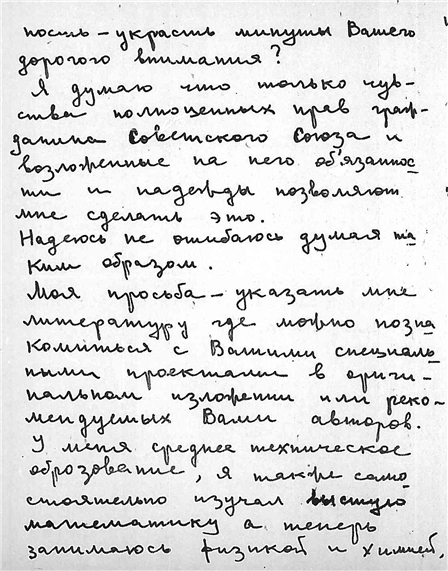 ность – украсть минуты Вашего
дорогого внимания?
Я думаю что только чув-
ства полноценных прав граж-
данина Советского Союза и
возложенные на него об'язаннос
ти и надежды позволяют
мне сделать это.
Надеюсь не ошибаюсь думая та
ким образом.
Моя просьба – указать мне
литературу где можно позна
комиться с Вашими специаль
ными проектами в ориги-
нальном изложении или реко-
мендуемых Вами авторов.
У меня среднее техническое
оброзование, я также само
стоятельно изучал высшую
математику а теперь
занимаюсь физикой и химией,